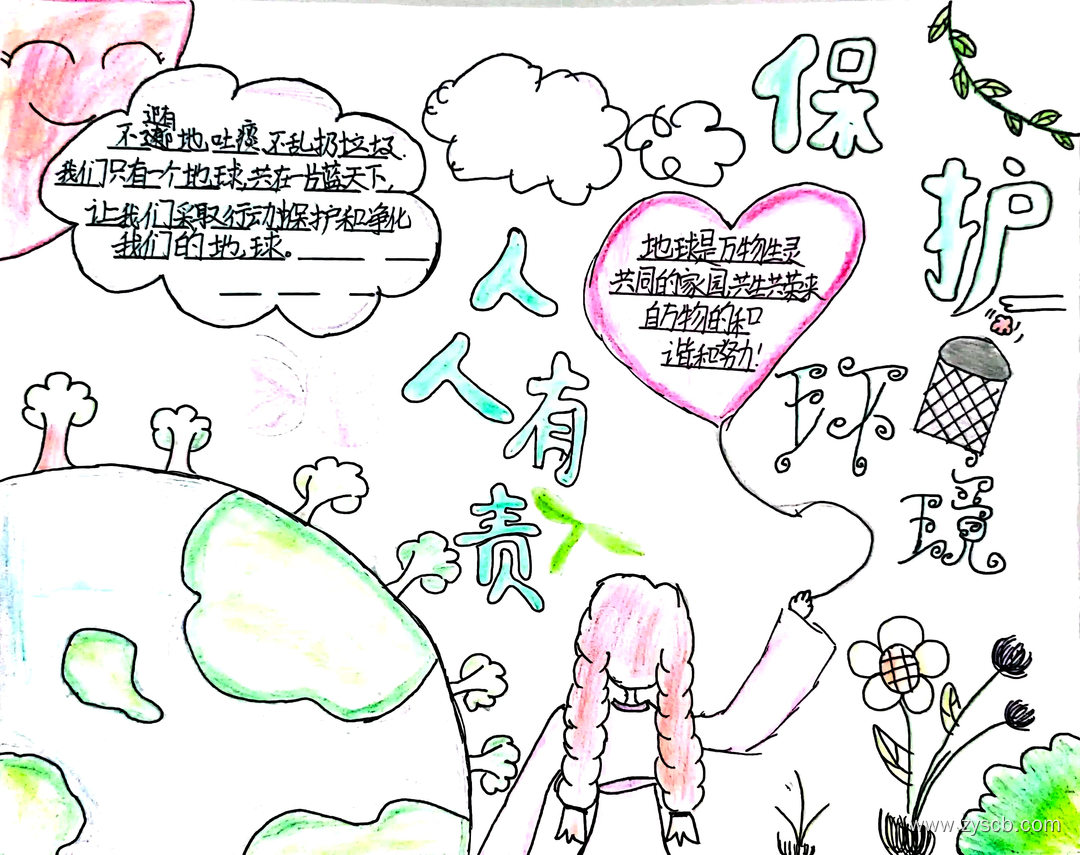 保护
环境
人人有责
不随地吐痰、不乱扔垃圾.
我们只有一个地球,共在一片蓝天下,
让我们采取行动!保护和净化
我们的地球。
地球是万物生灵
共同的家园,共生共荣来
自万物的和
谐和努力!
www.zyscb.com